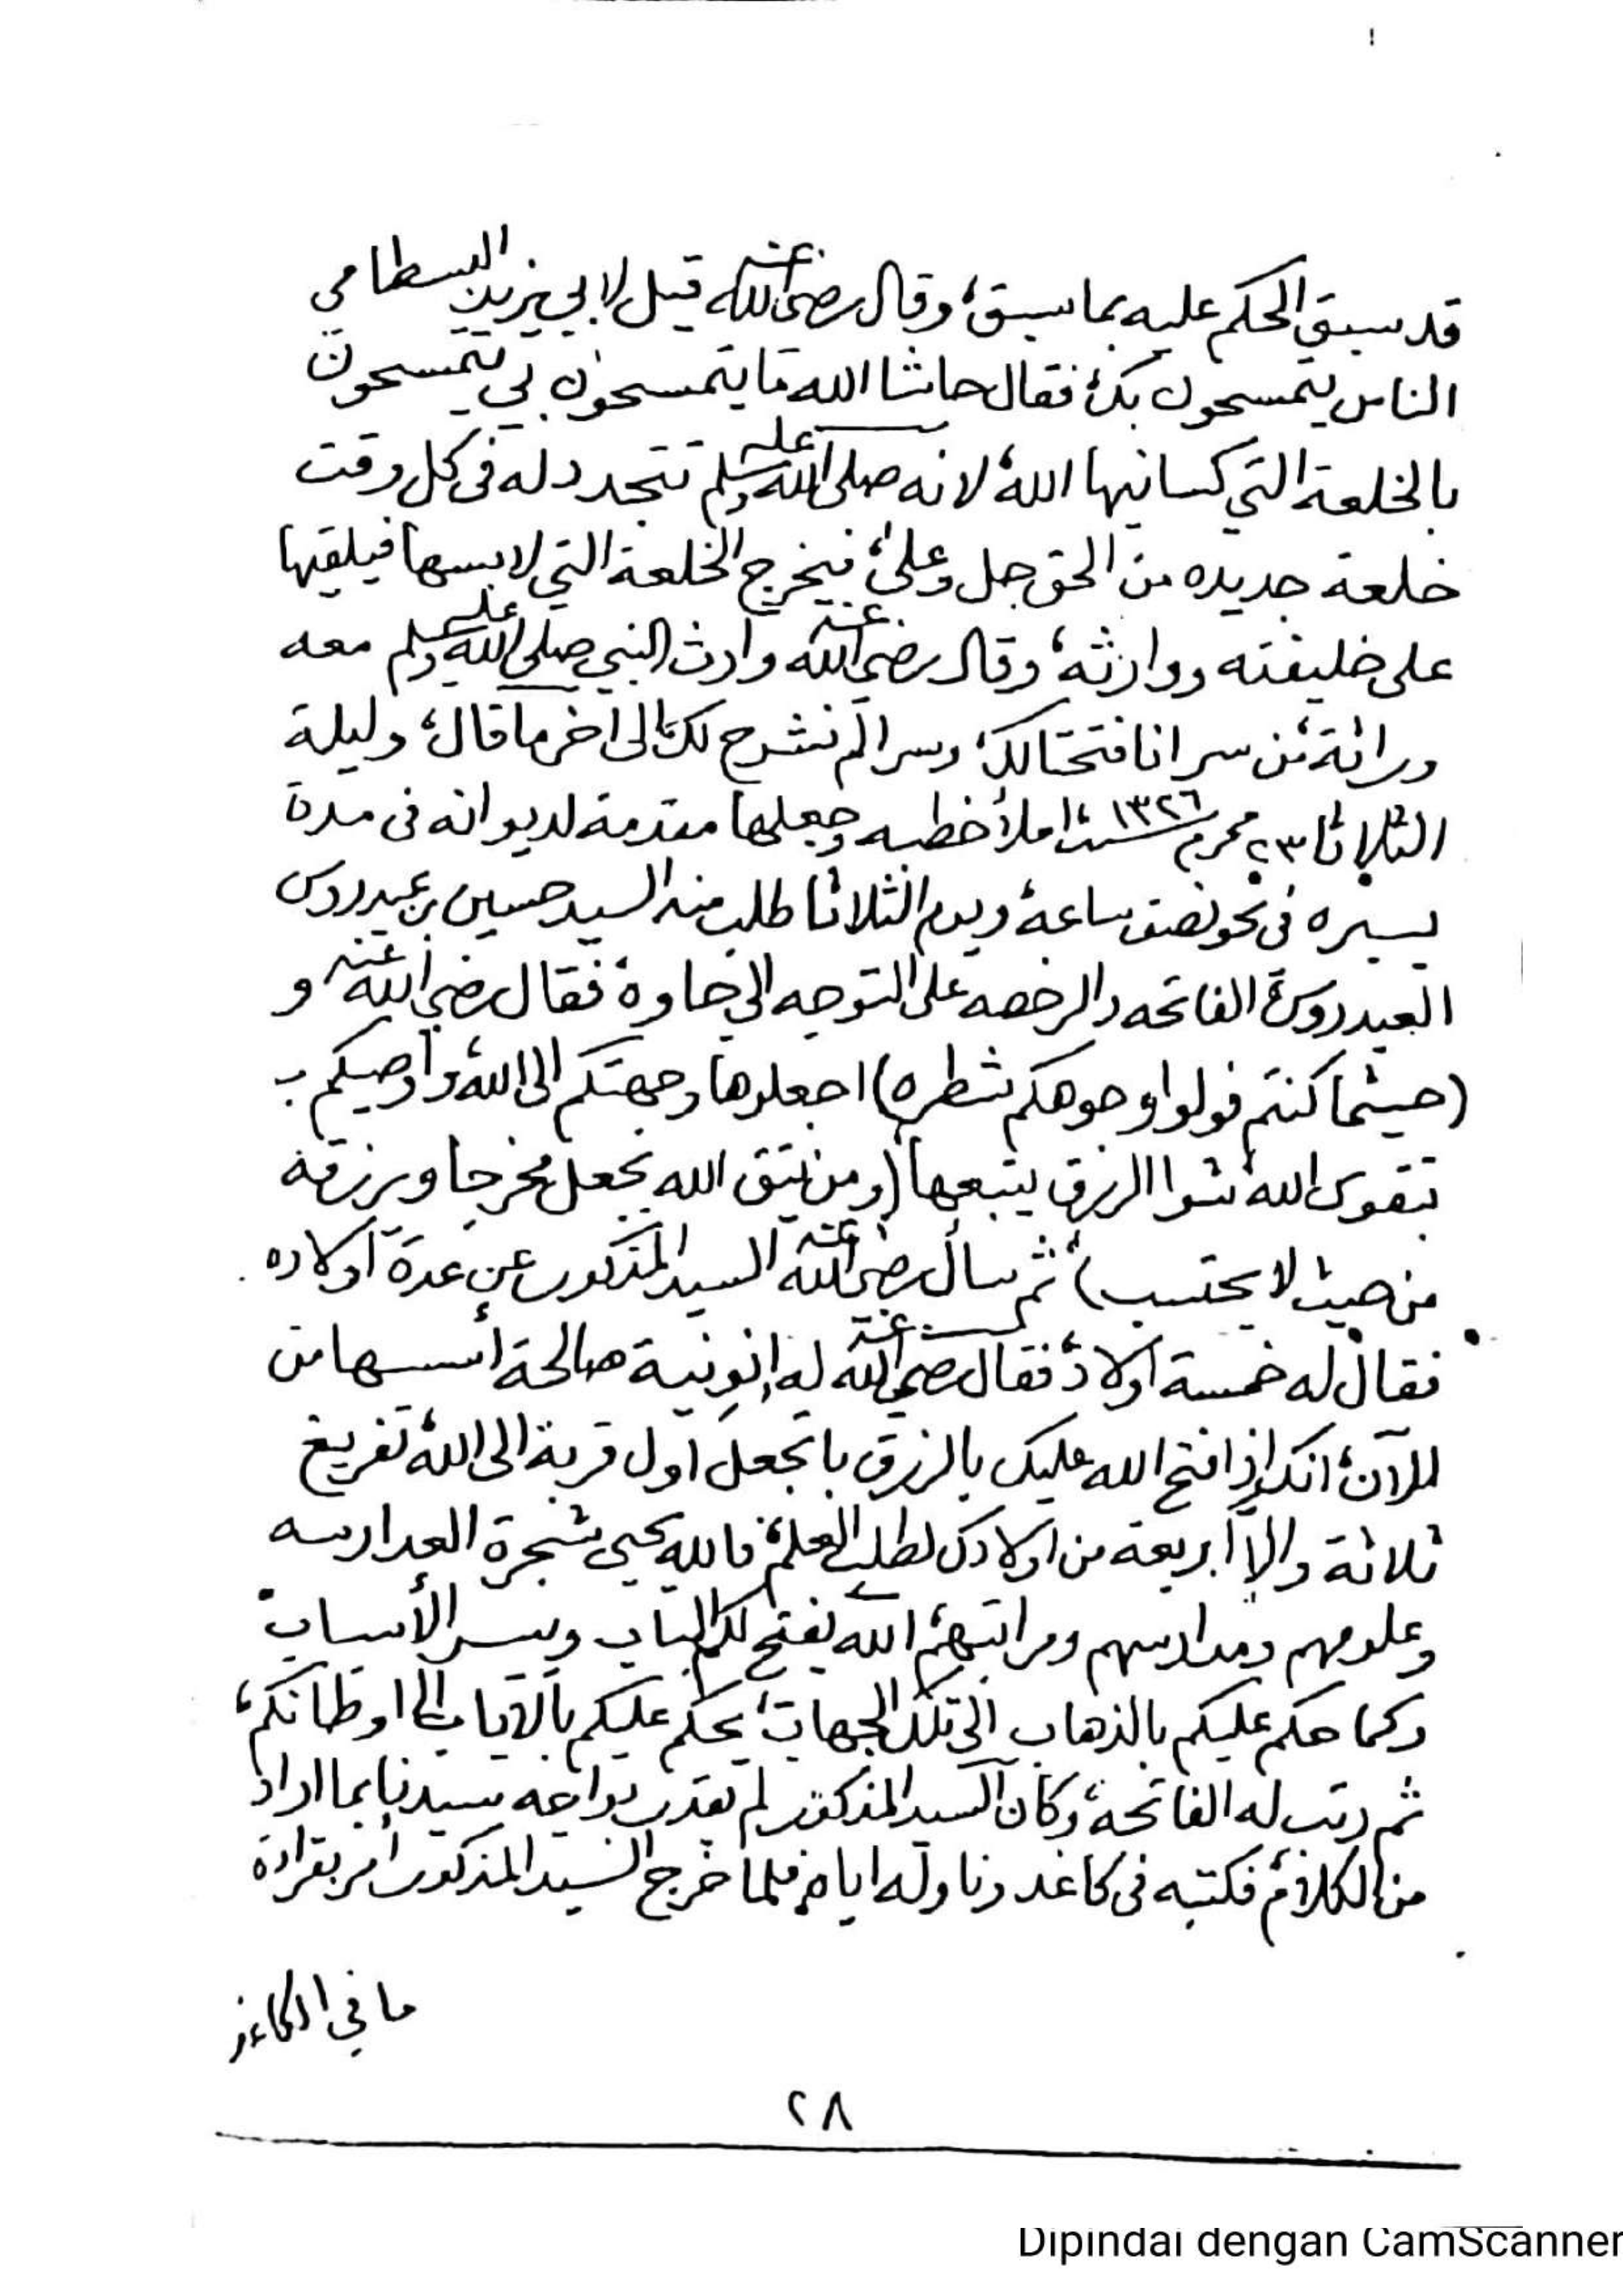 قد سبق الحكم عليه بما سبق، وقال رضي الله عنه قيل لابي يزيد البسطامي
الناس يتمسحون بك، فقال حاشا الله ما يتمسحون بي يتمسحون
بالخلعة التي كسانيها الله، لانه صلى الله عليه وسلم تتجدد له في كل وقت
خلعة جديده من الحق جل وعلى، فيخرج الخلعة التي لابسها فيلقيها
على خليفته ووارثه، وقال رضي الله عنه وارث النبي صلى الله عليه وسلم معه
وراثة من سر انا فتحنا لك، وسر الم نشرح لك، الى آخر ما قال، وليلة
الثلاثا ٢٣ محرم سنة ١٣٢٦ املأ خطبه وجعلها مقدمة لديوانه في مدة
يسيره في نحو نصف ساعة، ويوم الثلاثا طلب منه السيد حسين بن عيدروس
العيدروس، الفاتحه والرخصه على التوجه الى جاوة، فقال رضي الله عنه و
(حيثما كنتم فولوا وجوهكم شطره) اجعلوها وجهتكم الى الله، وأوصيكم ب
بتقوى الله شوا الرزق يتبعها (ومن يتق الله يجعل مخرجا ويرزقه
من حيث لا يحتسب) ثم سأل رضي الله عنه السيد المذكور عن عدة أولاده
فقال له خمسة أولاد، فقال رضي الله عنه له إنو نية صالحة أسسها من
الآن، انك إذا فتح الله عليك بالرزق باتجعل أول قربة الى الله، تفريغ
ثلاثة والا أربعة من اولادك لطلب العلم، فالله يحيي شجرة العدارسه
وعلومهم ومدارسهم ومراتبهم، الله يفتح لكم الباب وييسر الأسباب
وكما حكم عليكم بالذهاب الى تلك الجهات، يحكم عليكم بالاياب الى اوطانكم،
ثم رتب له الفاتحة، وكان السيد المذكور لم يقدر يواجه سيدنا بما اراد
من الكلام، فكتبه في كاغد وناوله اياه، فلما خرج السيد المذكور أمر بقراءة
ما في الكاغذ
٢٨
Dipindai dengan CamScanner